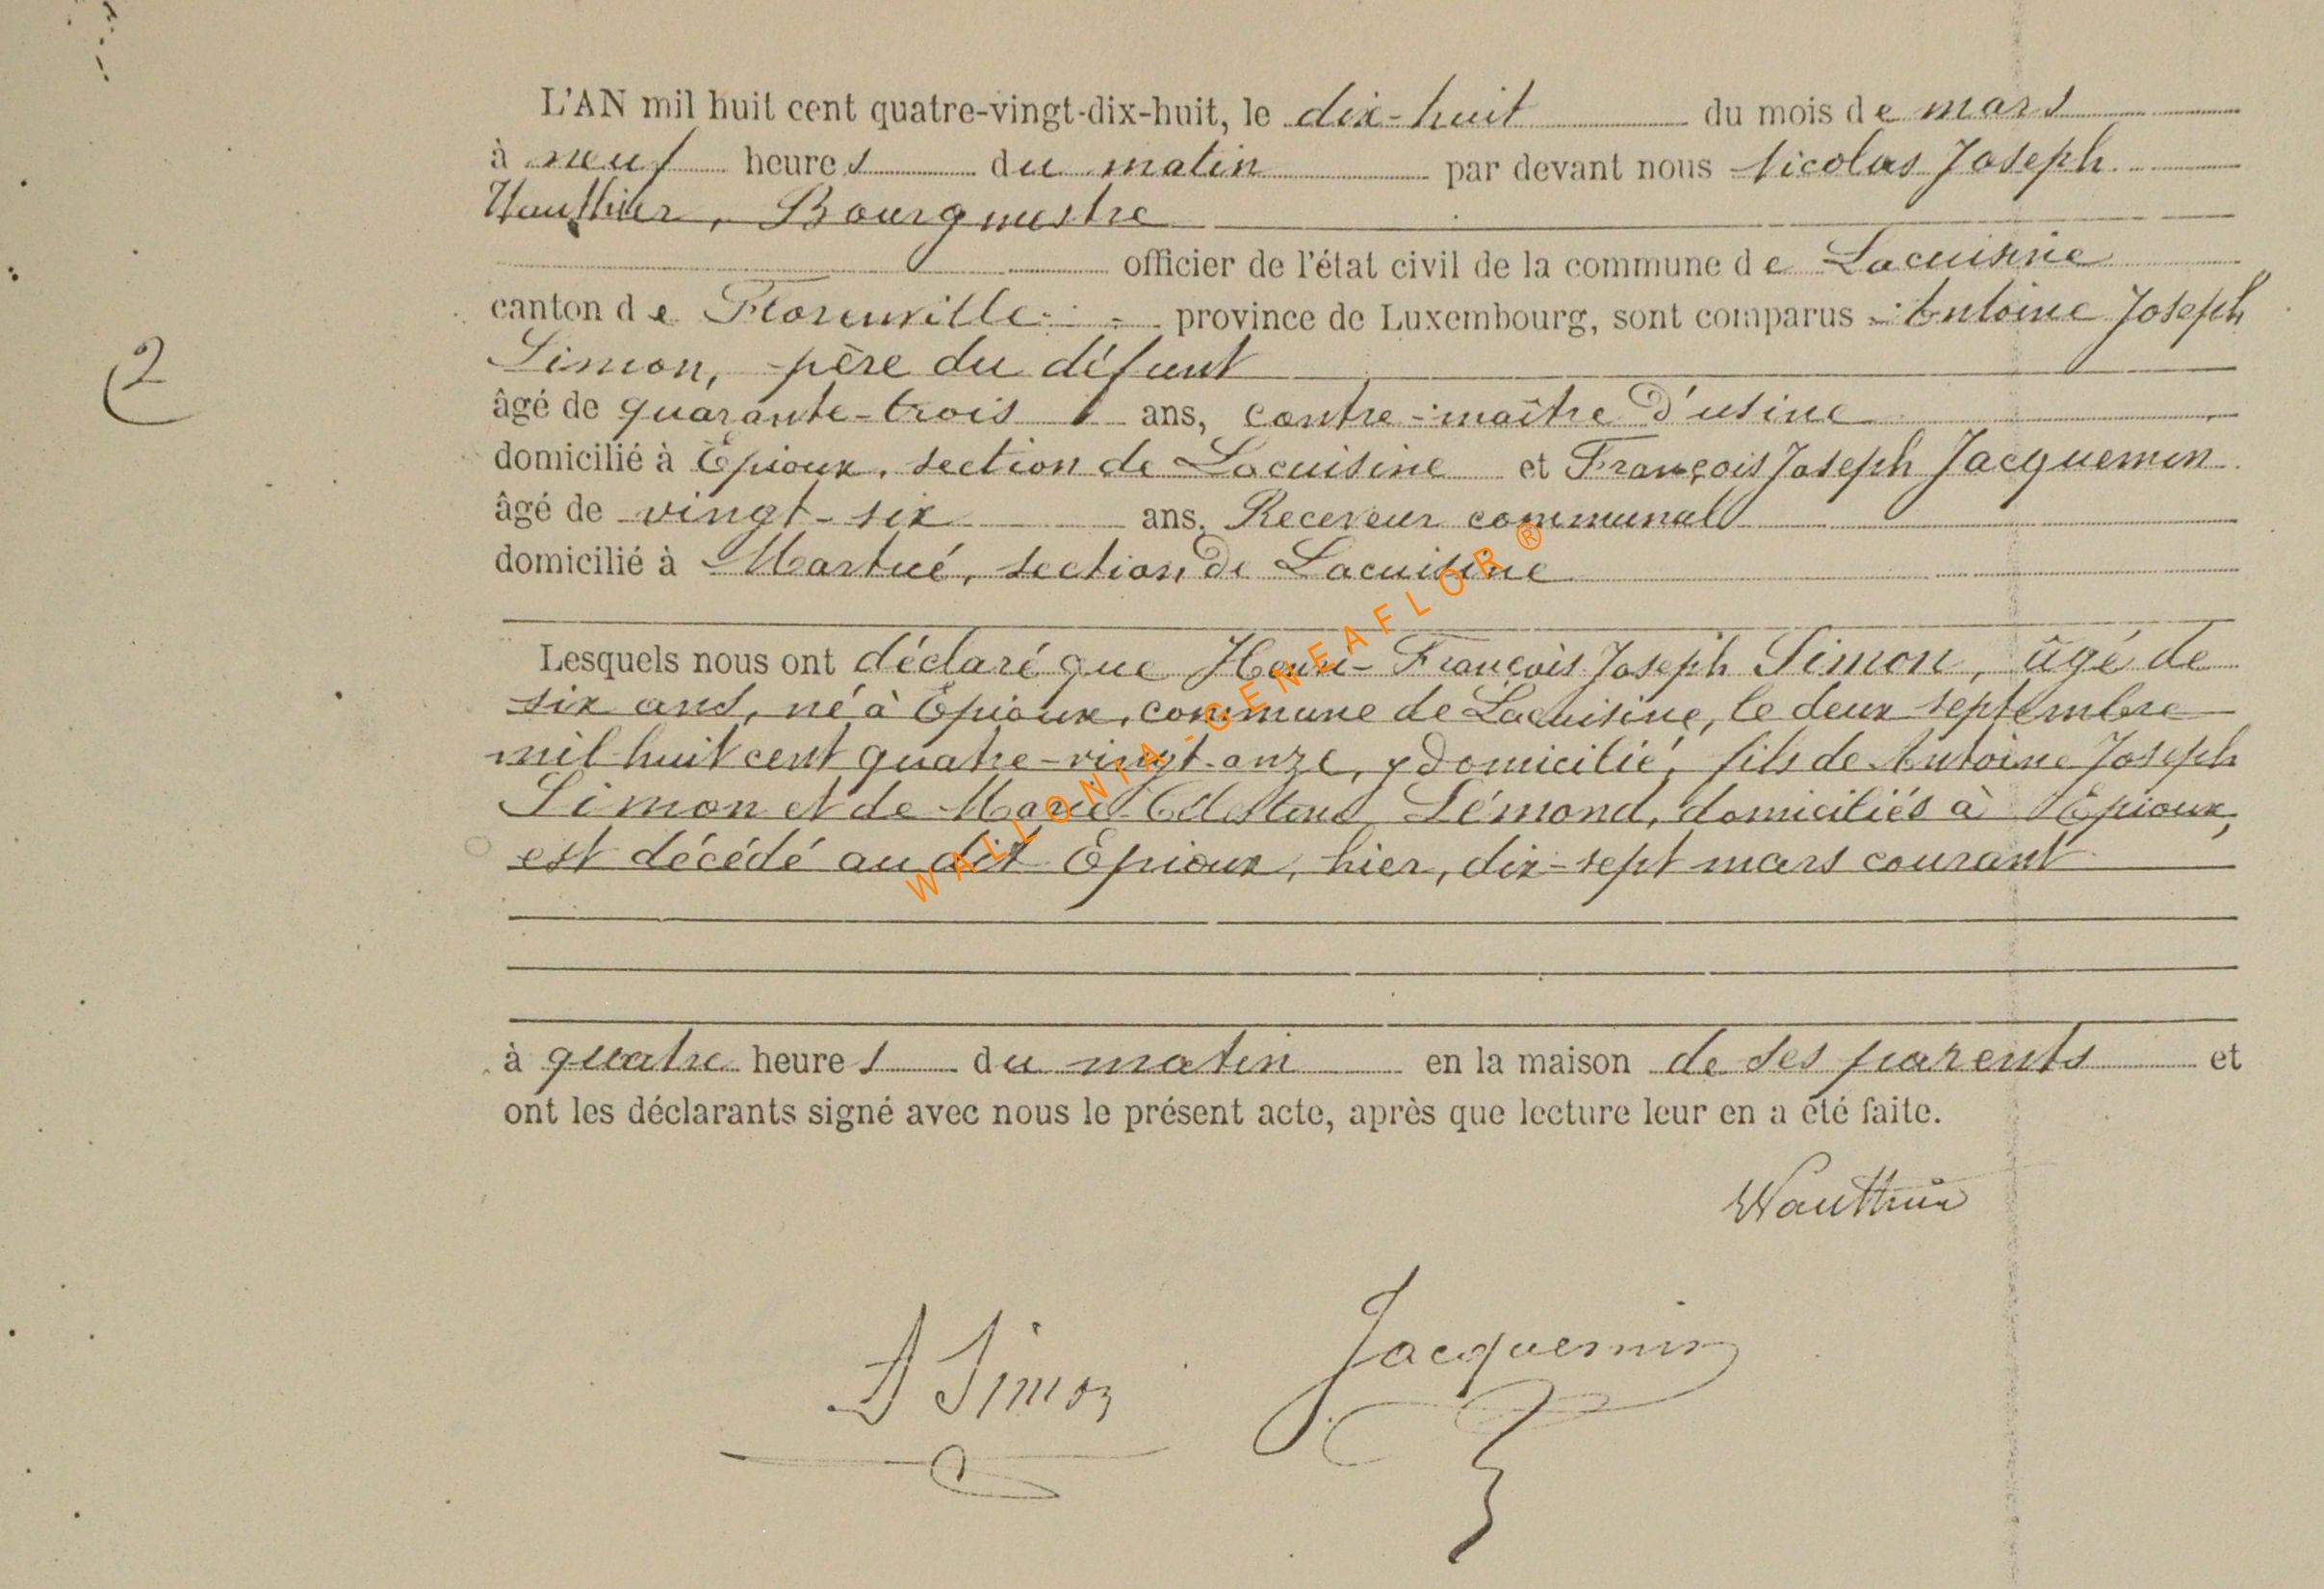 L'AN mil huit cent quatre-vingt-dix-huit, le dix-huit du mois de mars
à neuf heures du matin par devant nous Nicolas Joseph
Wauthier, Bourgmestre
officier de l'état civil de la commune de Lacuisine
canton de Florenville province de Luxembourg, sont comparus Antoine Joseph
Simon, père du défunt
âgé de quarante-trois ans, contre-maître d'usine
2
domicilié à Epioux, section de Lacuisine et François Joseph Jacquemin
âgé de vingt-six ans, Receveur communal
domicilié à Martué, section de Lacuisine
WALLONIA-GENEAFLOR®
Lesquels nous ont déclaré que Henri-François Joseph Simon, âgé de
six ans, né à Epioux, commune de Lacuisine, le deux septembre
mil huit cent quatre-vingt-onze, y domicilié, fils de Antoine Joseph
Simon et de Marie Lémond, domiciliés à Epioux,
est décédé au dit Epioux, hier, dix-sept mars courant
à quatre heures du matin en la maison de ses parents et
ont les déclarants signé avec nous le présent acte, après que lecture leur en a été faite.
Wauthier
A Simon Jacquemin